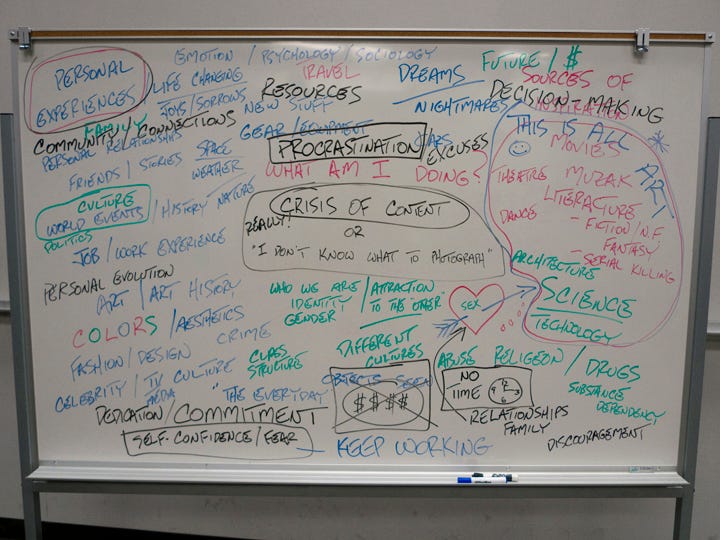 EMOTION / PSYCHOLOGY / SOCIOLOGY
FUTURE / $
PERSONAL
EXPERIENCES
LIFE CHANGING
TRAVEL
DREAMS
SOURCES OF
JOYS / SORROWS
RESOURCES
NIGHTMARES
DECISION-MAKING
FAMILY
COMMUNITY / CONNECTIONS
NEW STUFF
PERSONAL RELATIONSHIPS
GEAR / EQUIPMENT
THIS IS ALL
ART
PROCRASTINATION
EXCUSES
MOVIES
FRIENDS / STORIES
SPACE
WEATHER
WHAT AM I DOING?
THEATRE
MUZAK
CULTURE
WORLD EVENTS / HISTORY
NATURE
CRISIS OF CONTENT
LITERATURE
DANCE
- FICTION / N.F
FANTASY
- SERIAL KILLING
POLITICS
REALLY!
OR
JOB / WORK EXPERIENCE
"I DON'T KNOW WHAT TO PHOTOGRAPH"
ARCHITECTURE
PERSONAL EVOLUTION
ART / ART HISTORY
WHO WE ARE / ATTRACTION
IDENTITY
TO THE "OTHER"
GENDER
SEX
SCIENCE
TECHNOLOGY
COLORS / AESTHETICS
CRIME
DIFFERENT
CULTURES
FASHION / DESIGN
CLASS
STRUCTURE
ABUSE
RELIGEON / DRUGS
CELEBRITY / TV CULTURE
"THE EVERYDAY"
OBJECTS
$$$$
NO
TIME
12
3
6
9
SUBSTANCE
DEPENDENCY
DEDICATION / COMMITMENT
RELATIONSHIPS
FAMILY
SELF-CONFIDENCE / FEAR
KEEP WORKING
DISCOURAGEMENT